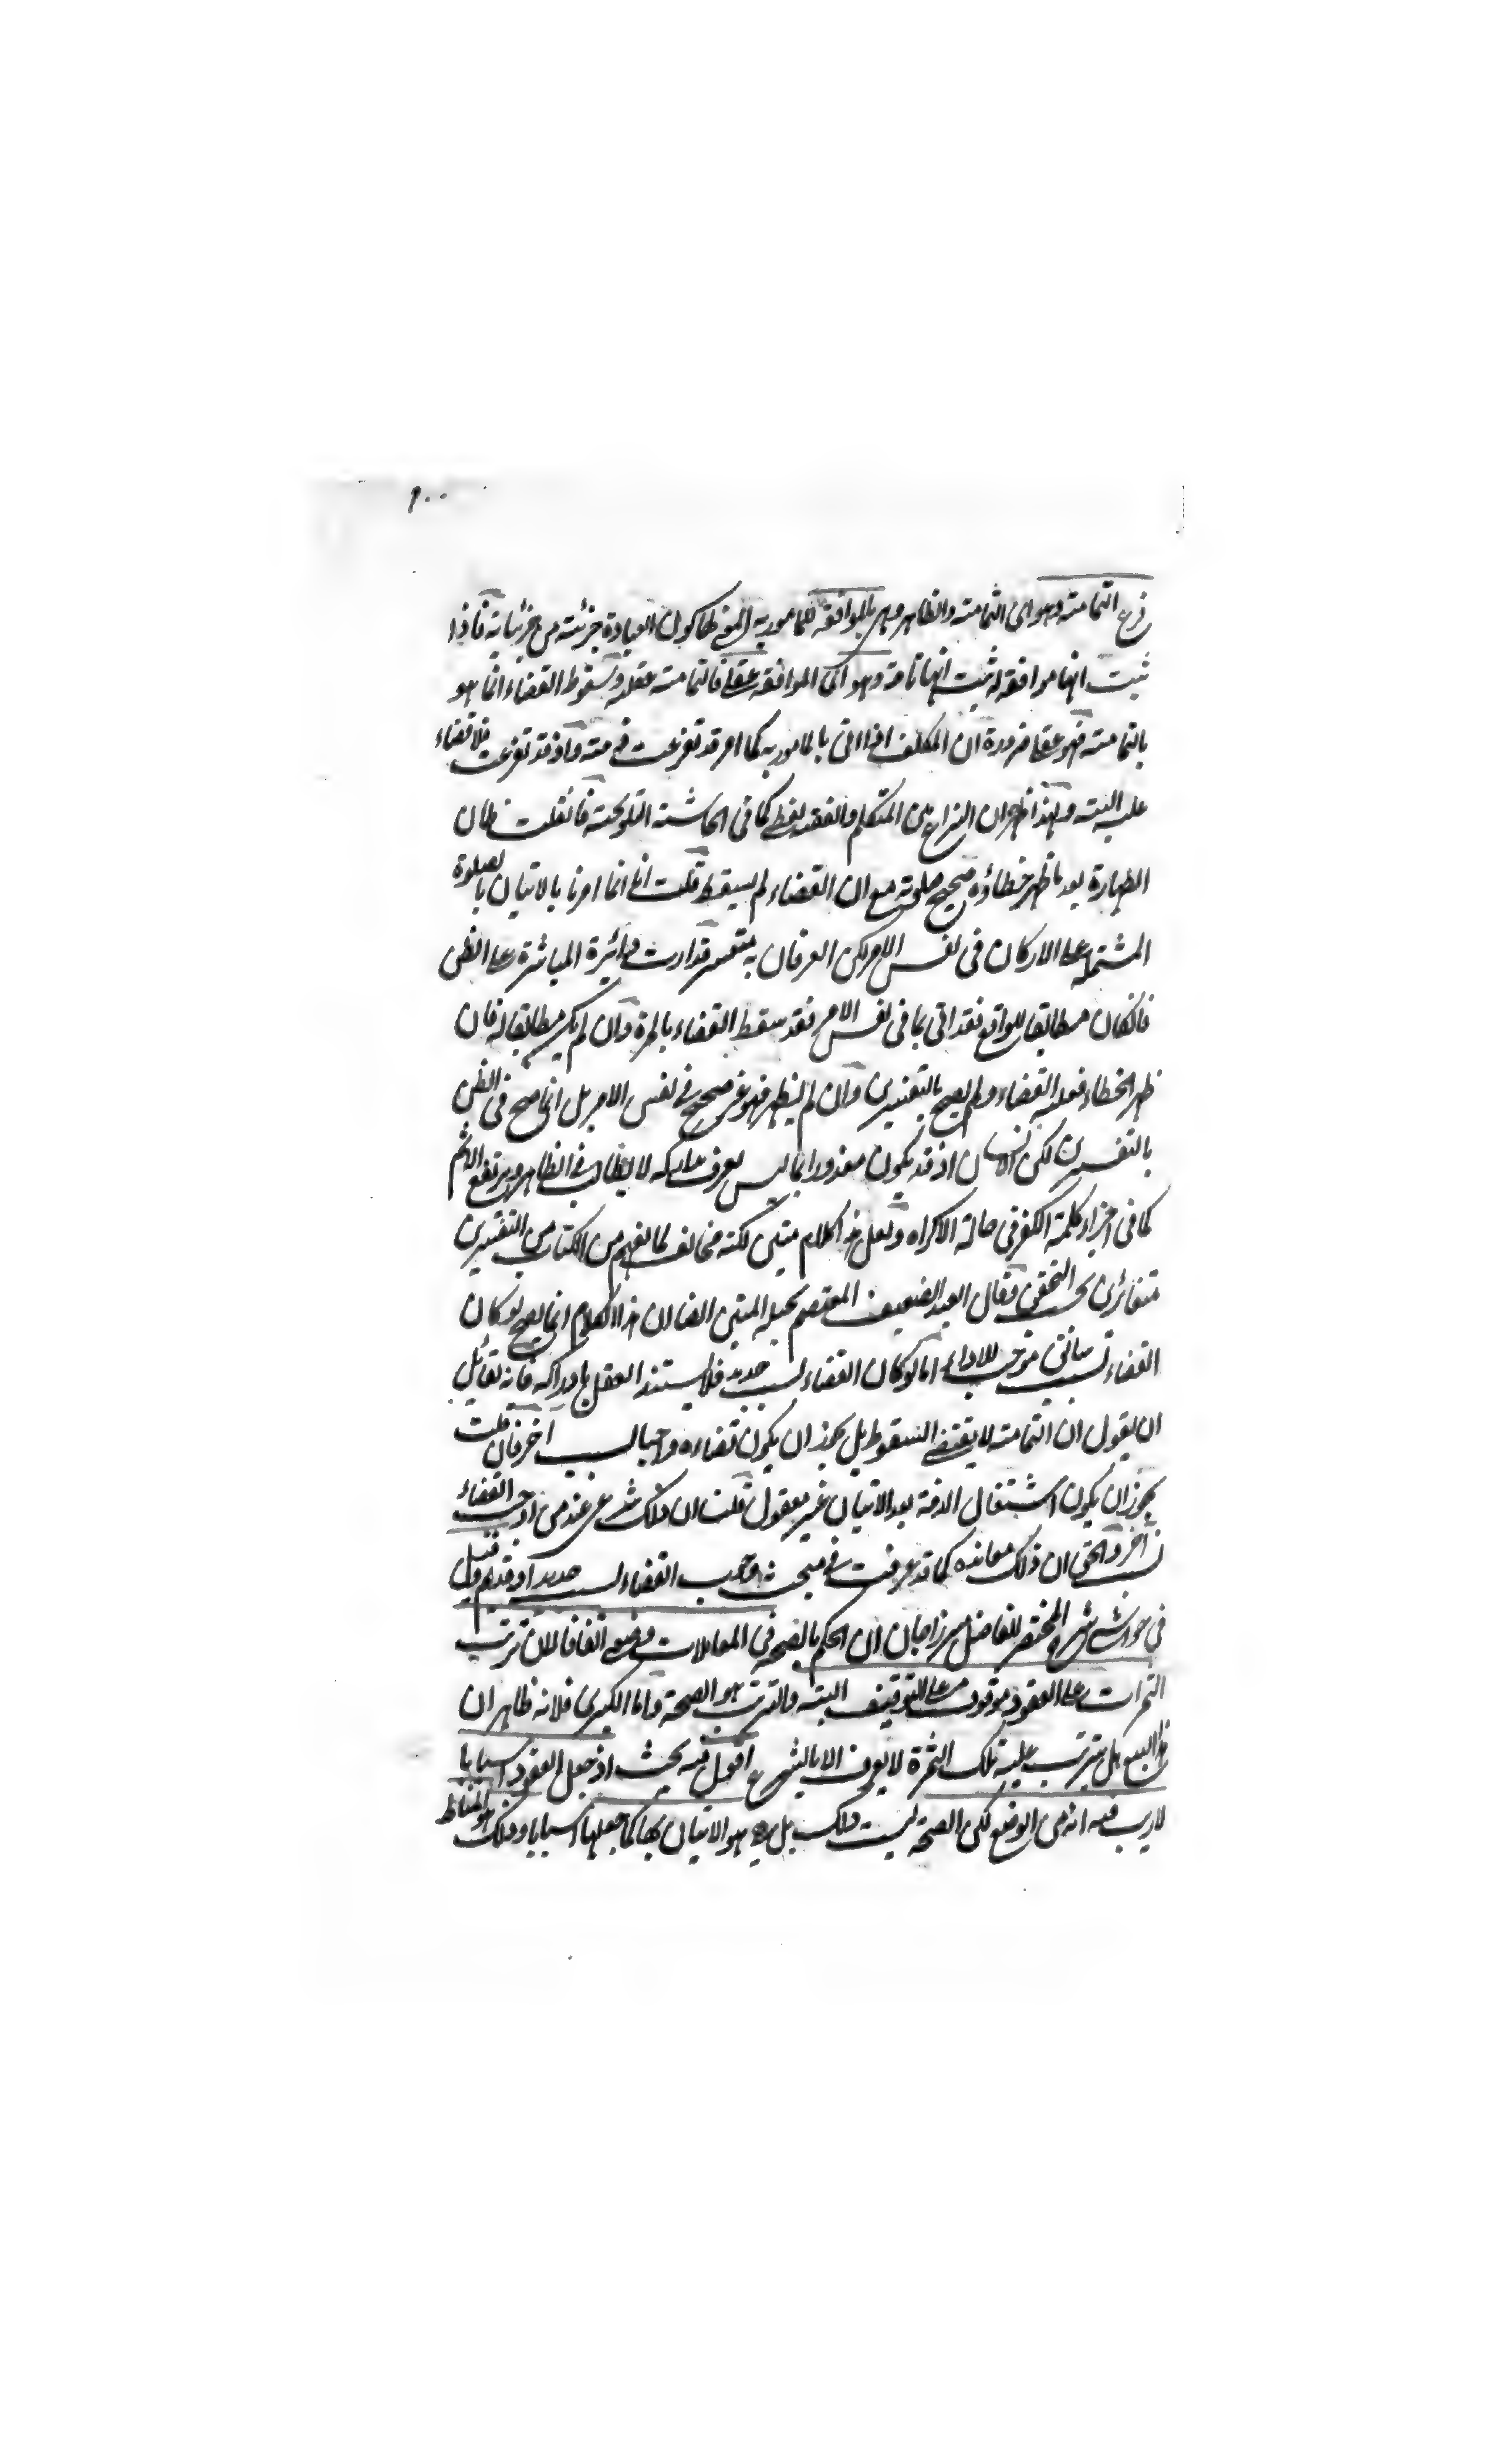 ٩٠٠
فرع التمامته وهو اى التمامته والظاهر وهى بالموافقه للمامور به المعنى لها كون العبادة جزئية من جزئياته فاذا
ثبت انها موافقه له ثبت انها تامة وهو اى الموافقه عقلے فالتمامته عقلية وسقوط القضاء انما هو
بالتمامته فهو عقلے ضرورة ان المكلف اذا اتى بالمامور به كما امر قد تفرغت ذمته واذ قد تفرغت فلا قضاء
عليه البتة وبهذا ظهر ان النزاع بين المتكلم والفقيه لفظے كما فى الحاشية التلويحية فان قلت ظان
الطهارة بعد ما ظهر خطاؤه صحيح صلوته مع ان القضاء لم يسقط قلت انا انما امرنا بالاتيان بالصلوة
المشتملة على الاركان فى نفس الامر لكن العرفان به متعسر فدارت دائرة المباشرة على الظن
فان كان مطابقا للواقع فقد اتى بما فى نفس الامر فقد سقط القضاء بالمرة وان لم يكن مطابقا له فان
ظهر الخطاء فعليه القضاء ولم يصح بالتفسيرين وان لم يظهر فهو غير صحيح فى نفس الامر بل انما صح فى الظن
بالتفسيرين لكن الانسان اذ قد يكون معذورا بما ليس يعرف مداركه لا يطالب فى الظاهر ويرتفع الاثم
كما فى اجزاء كلمة الكفر فى حالة الاكراه ولعل هذا كلام متين لكنه مخالف لما يفهم من الكتاب من التفسيرين
متغائرين بحسب التحقق وقال العبد الضعيف المعتصم بحبله المتين ايضا ان هذا الكلام انما يصح لو كان
القضاء بسبب سابق موجب للاداء اما لو كان القضاء بسبب جديد فلا يستند العقل بادراكه فانه لقائل
ان يقول ان التمامته لا يقتضے السقوط بل يجوز ان يكون قضاءه واجبا لسبب اخر فان قلت
يجوز ان يكون اشتغال الذمة بعد الاتيان غير معقول قلت ان ذلك شے عند من اوجب القضاء
بسبب اخر والحق ان ذلك معانده كما قد عرفت فى مبحث وجوب القضاء بسبب جديد او قديم وقيل
فى حواشے شرح المختصر للفاضل ميرزاجان ان الحكم بالصحة فى المعاملات وضعے اتفاقا لان ترتب
الثمرات على العقود موقوف على التوقيف البتة والترتب هو الصحة واما الكبرى فلانه ظاهر ان
هذا البيع هل يترتب عليه تلك الثمرة لا يعرف الا بالشرع اقول فيه بحث اذ جعل العقود اسبابا
لا ريب فيه انه من الوضع لكن الصحة ليست ذلك بل هو الاتيان بها كما جعلها اسبابا وذلك هو المناط